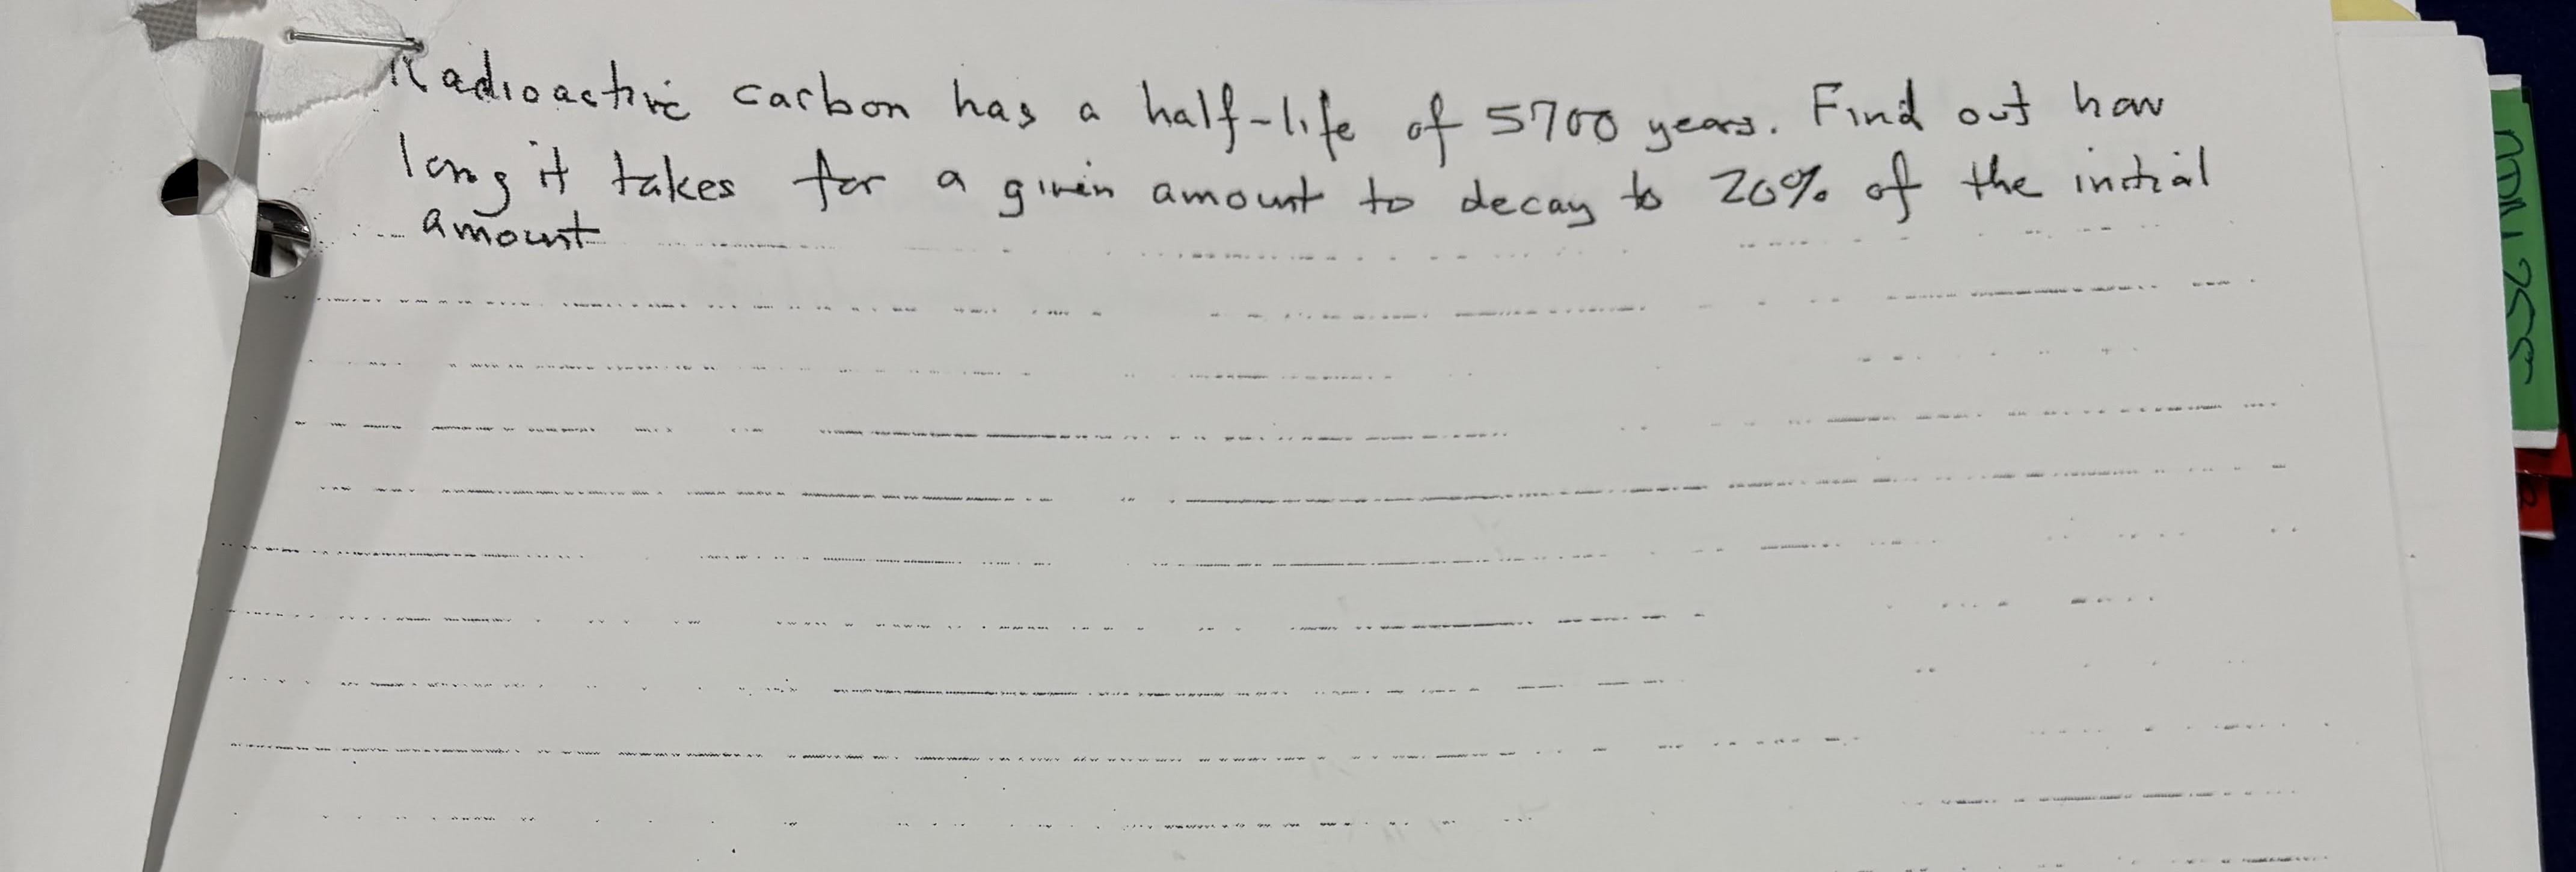 Radioactive carbon has a half-life of 5700 years. Find out how
long it takes for a given amount to decay to 20% of the initial
amount